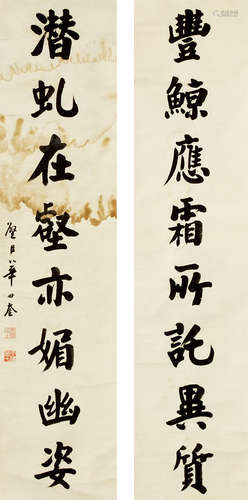 豐鯨應霜所託異質
潛虬在壑亦媚幽姿
璧臣華世奎